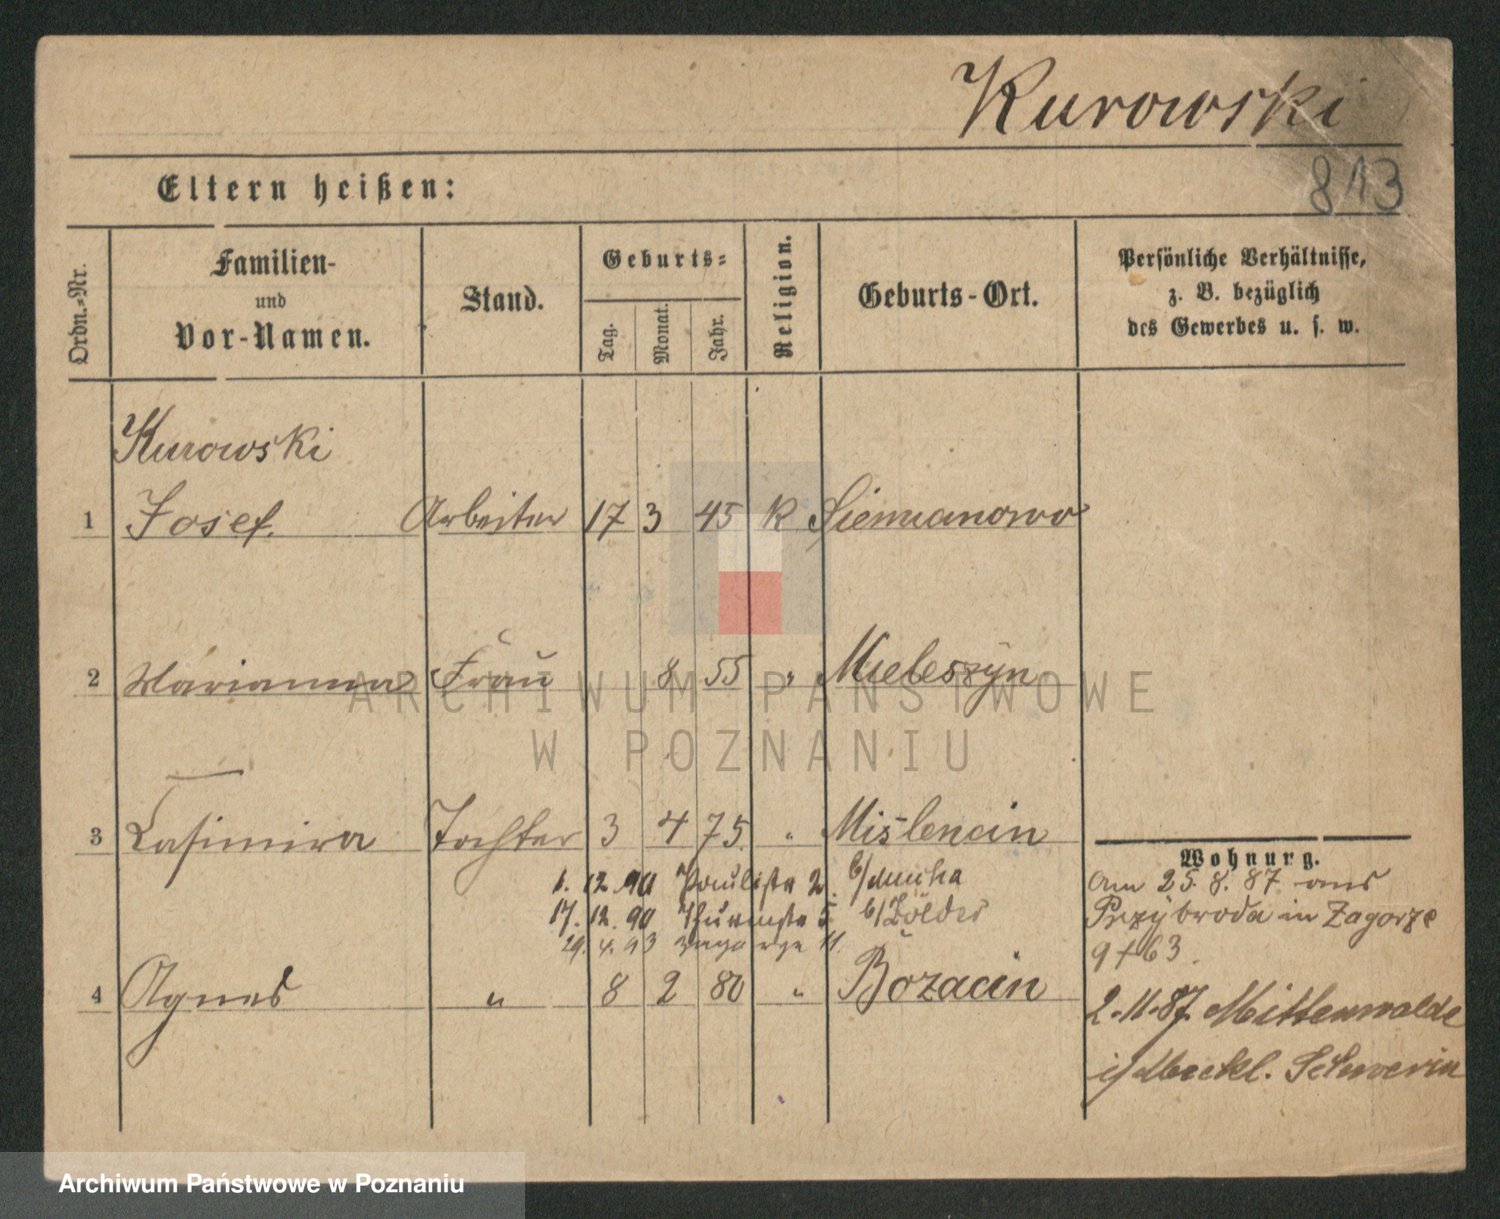 Kurowski
813
Eltern heißen:
Ordn.-Nr.
Familien-
und
Vor-Namen.
Stand.
Geburts-
Tag.
Monat.
Jahr.
Religion.
Geburts-Ort.
Persönliche Verhältnisse,
z. B. bezüglich
des Gewerbes u. s. w.
Kurowski
1 Josef. Arbeiter 17 3 45 K Siemianowo
2 Marianna Frau 8 55 " Mieleszyn
3 Kasimira Tochter 3 4 75 " Mislencin
1. 12. 90 Paulista 2. b/Mucha
17. 12. 90 Thurmstr 5 b/Zöldes
29. 4. 93 Zagorze 11.
4 Agnes " 8 2 80 " Bozacin
Wohnung.
Am 25. 8. 87 aus
Przybroda in Zagorze
9 + 63.
2.11.87 Mittenwalde
i/Meckl. Schwerin
ARCHIWUM PAŃSTWOWE
W POZNANIU
Archiwum Państwowe w Poznaniu